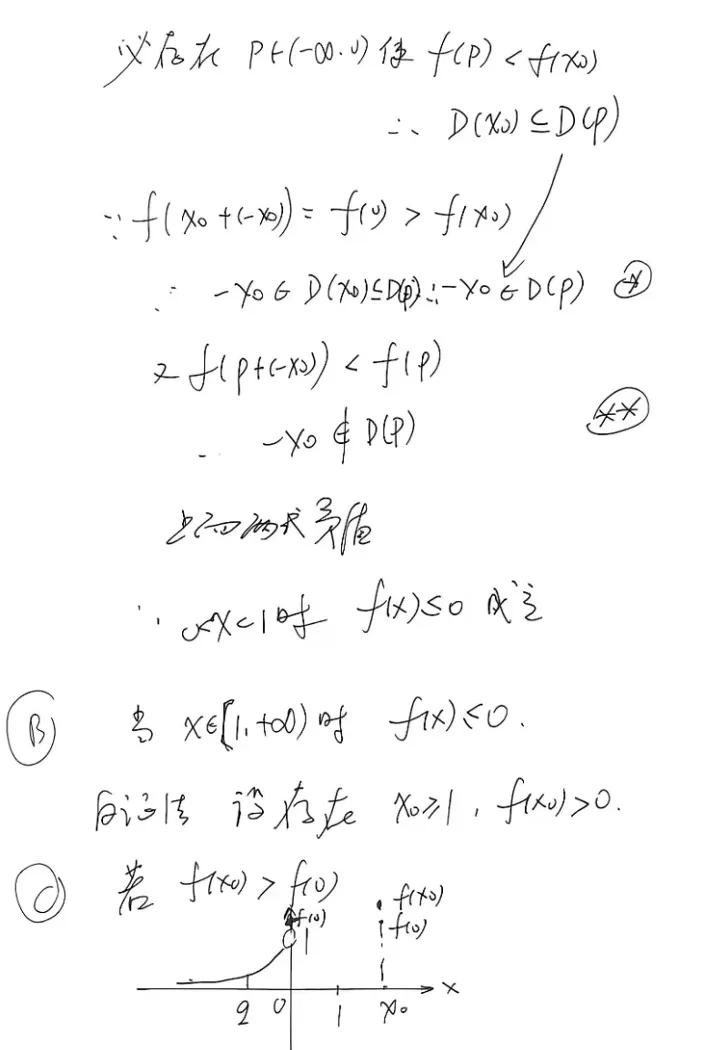 必存在 P∈(-∞,0)使 f(P)<f(x₀)
∴ D(x₀)⊆D(P)
∵f(x₀+(-x₀))=f(0)>f(x₀)
∴ -x₀∈D(x₀)⊆D(P)∴-x₀∈D(P) *
又f(P+(-x₀))<f(P)
∴ -x₀∉D(P) **
上面两式矛盾
∴ 0<x<1时 f(x)≤0 成立
B 当 x∈[1,+∞)时 f(x)≤0.
反证法 设存在 x₀≥1, f(x₀)>0.
若 f(x₀)>f(0)
f(0) f(x₀)
1 f(0)
q 0 1 x₀ x